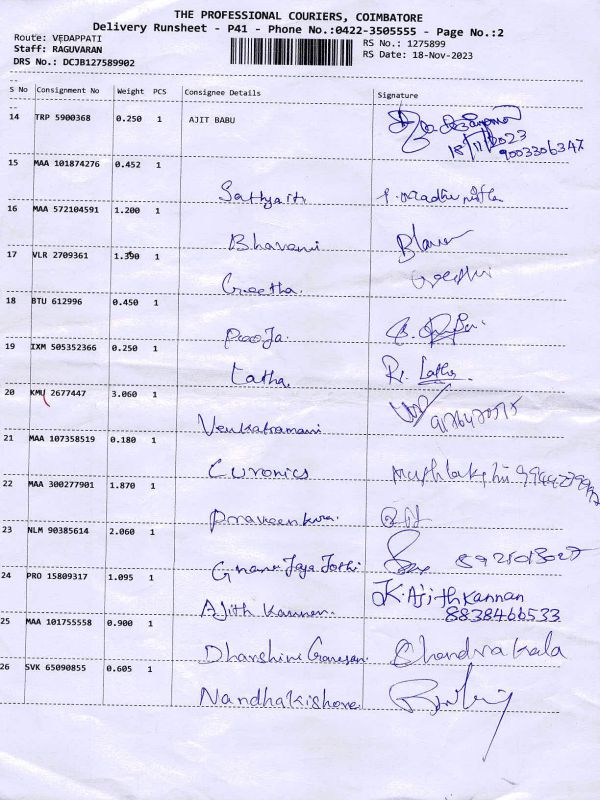 THE PROFESSIONAL COURIERS, COIMBATORE
Delivery Runsheet - P41 - Phone No.:0422-3505555 - Page No.:2
Route: VEDAPPATI
RS No.: 1275899
Staff: RAGUVARAN
RS Date: 18-Nov-2023
DRS No.: DCJB127589902
S No Consignment No Weight PCS Consignee Details Signature
14 TRP 5900368 0.250 1 AJIT BABU
18/11/2023
9003306347
15 MAA 101874276 0.452 1
16 MAA 572104591 1.200 1
Bhavani
17 VLR 2709361 1.390 1
Geetha
18 BTU 612996 0.450 1
Pooja
19 IXM 505352366 0.250 1
Latha R. Latha
20 KMU 2677447 3.060 1
Venkatramani
21 MAA 107358519 0.180 1
Curonics
22 MAA 300277901 1.870 1
23 NLM 90385614 2.060 1
Gnana Jaya Jothi
24 PRO 15809317 1.095 1
Ajith Kannan. K. Ajith Kannan
8838466533
25 MAA 101755558 0.900 1
Dharshini Ganesan. Chandrakala
26 SVK 65090855 0.605 1
Nandhakishore